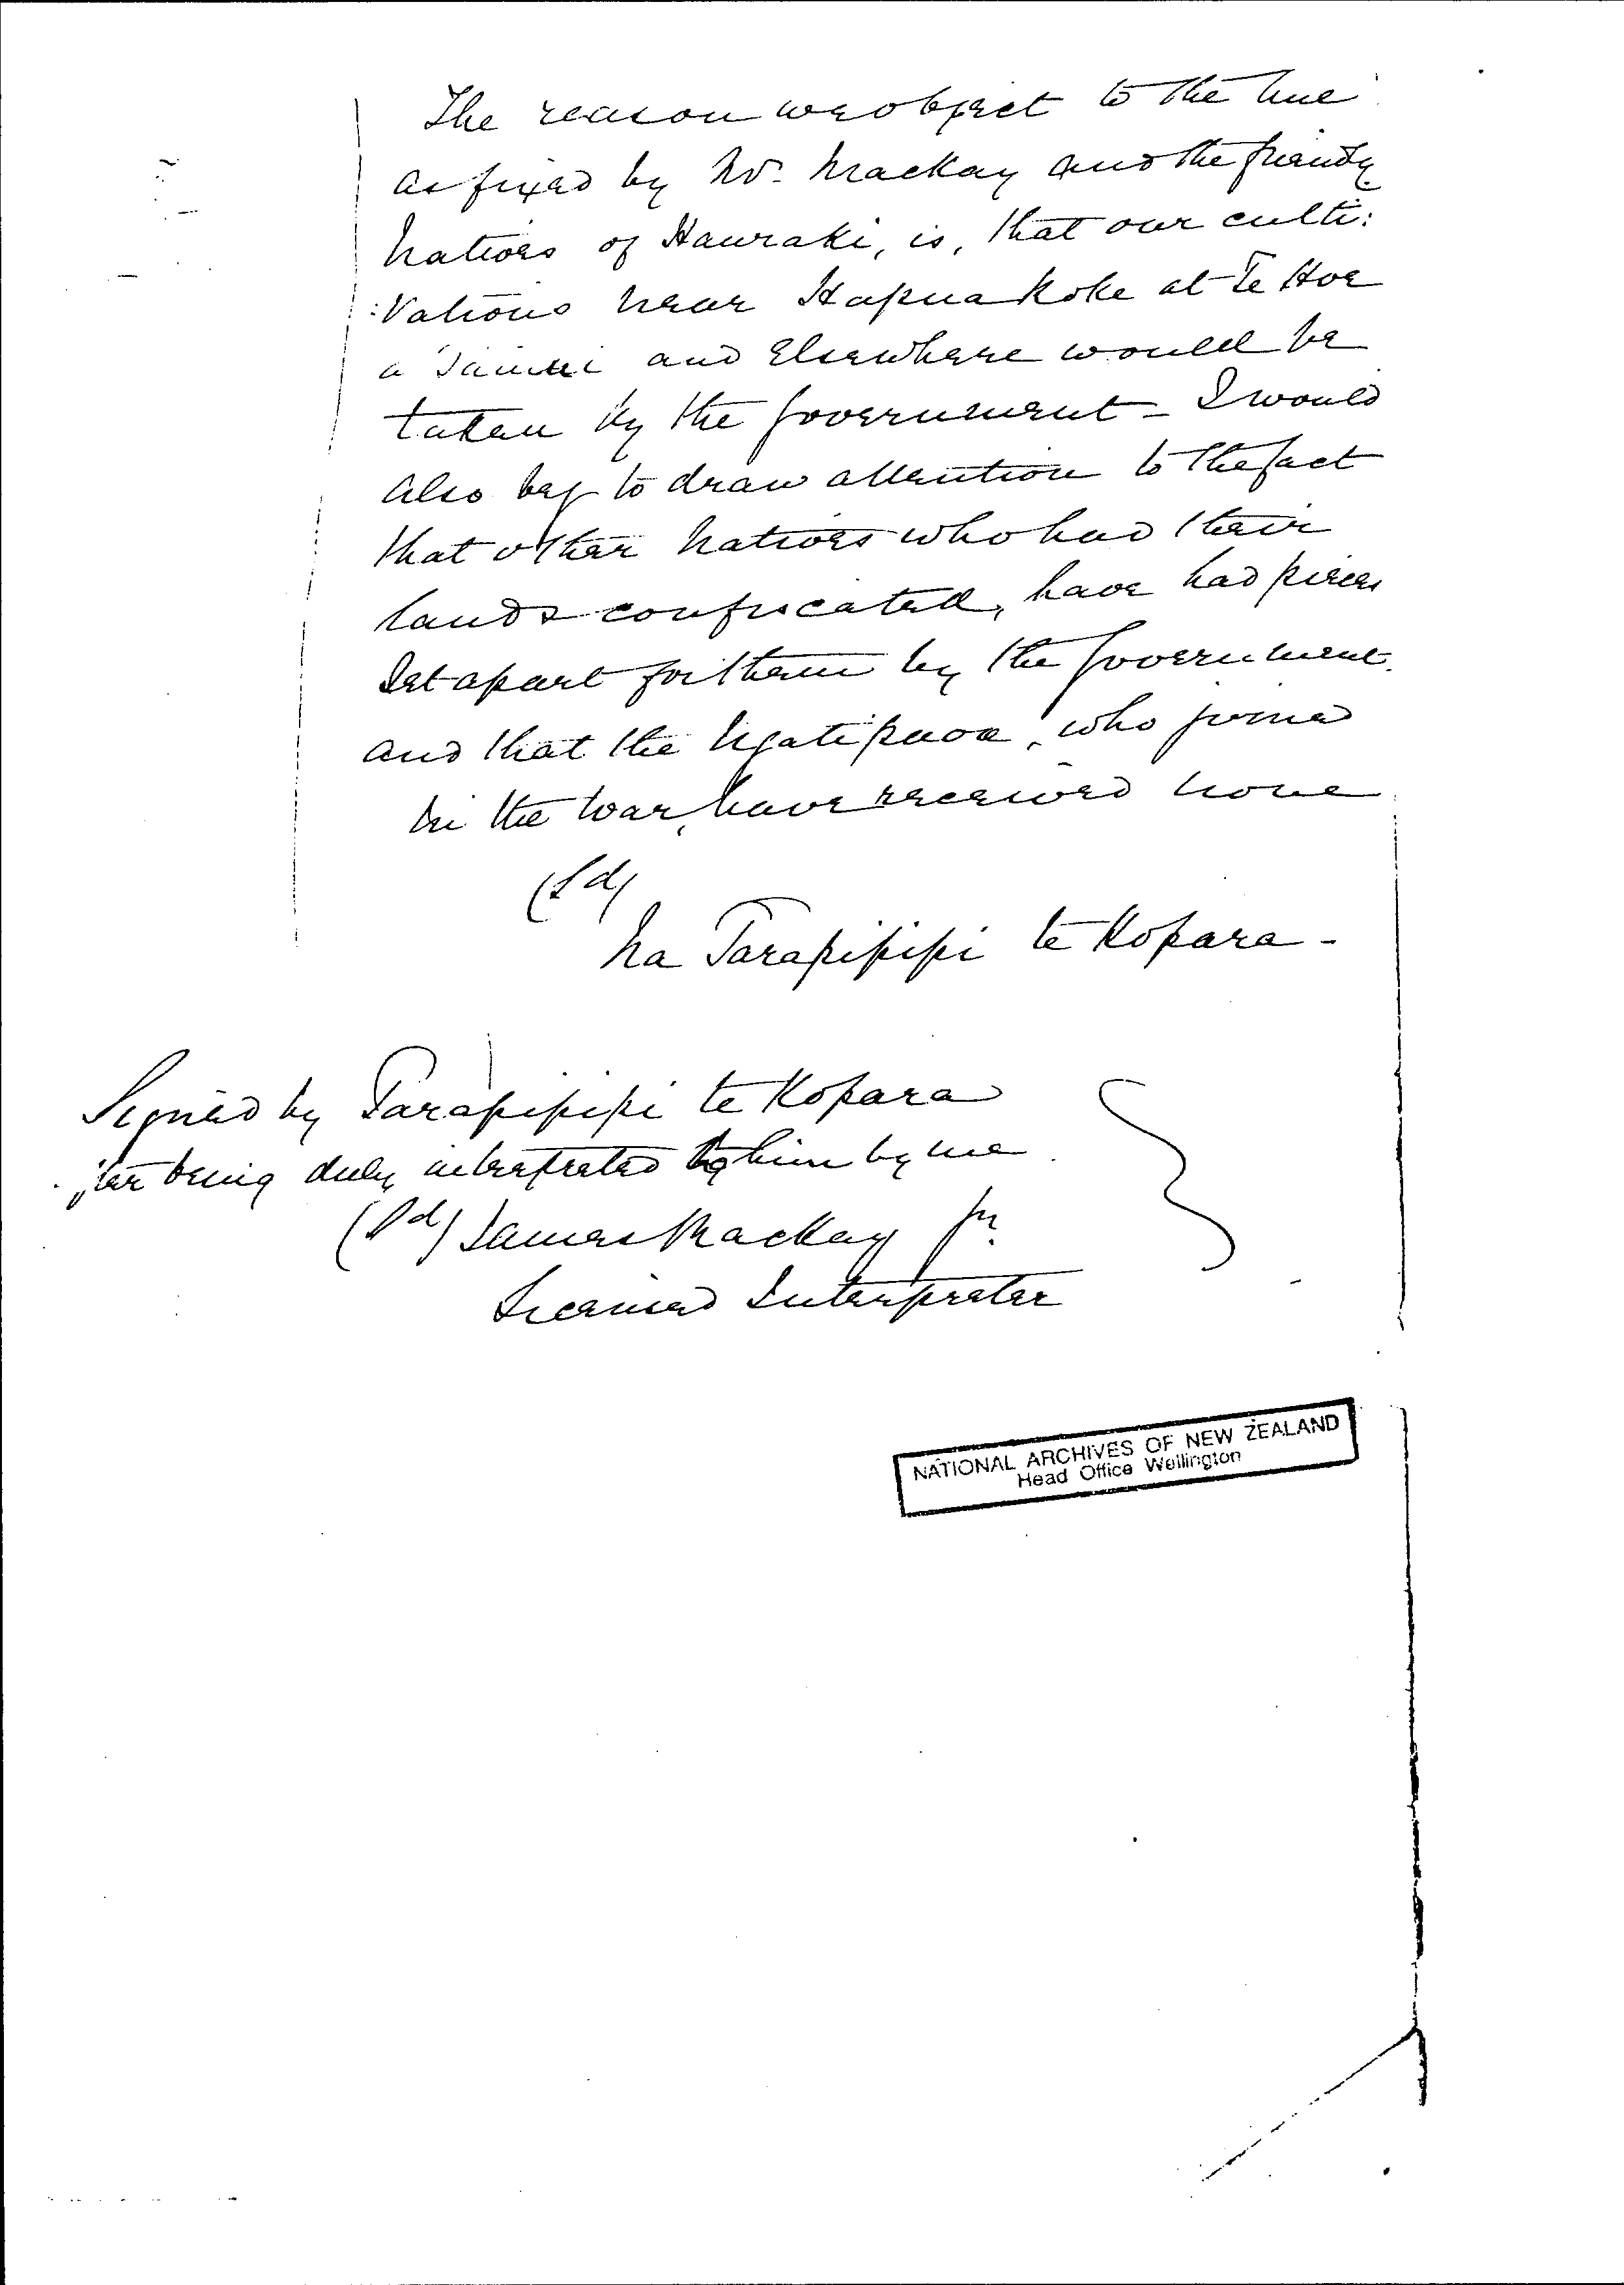 The reason we object to the line
as fixed by Mr. Mackay and the friendly
Natives of Hauraki, is, that our culti:
:vations near Hapuakoke at Te Hoe
a Tainui and elsewhere would be
taken by the Government - I would
also beg to draw attention to the fact
that other Natives who had their
lands confiscated, have had pieces
set apart for them by the Government.
and that the Ngatipaoa, who joined
in the war, have received none
(Sd)
Na Tarapipipi te Kopara -
Signed by Tarapipipi te Kopara
after being duly interpreted to him by me
(Sd) James Mackay Jr.
Licensed Interpreter
NATIONAL ARCHIVES OF NEW ZEALAND
Head Office Wellington